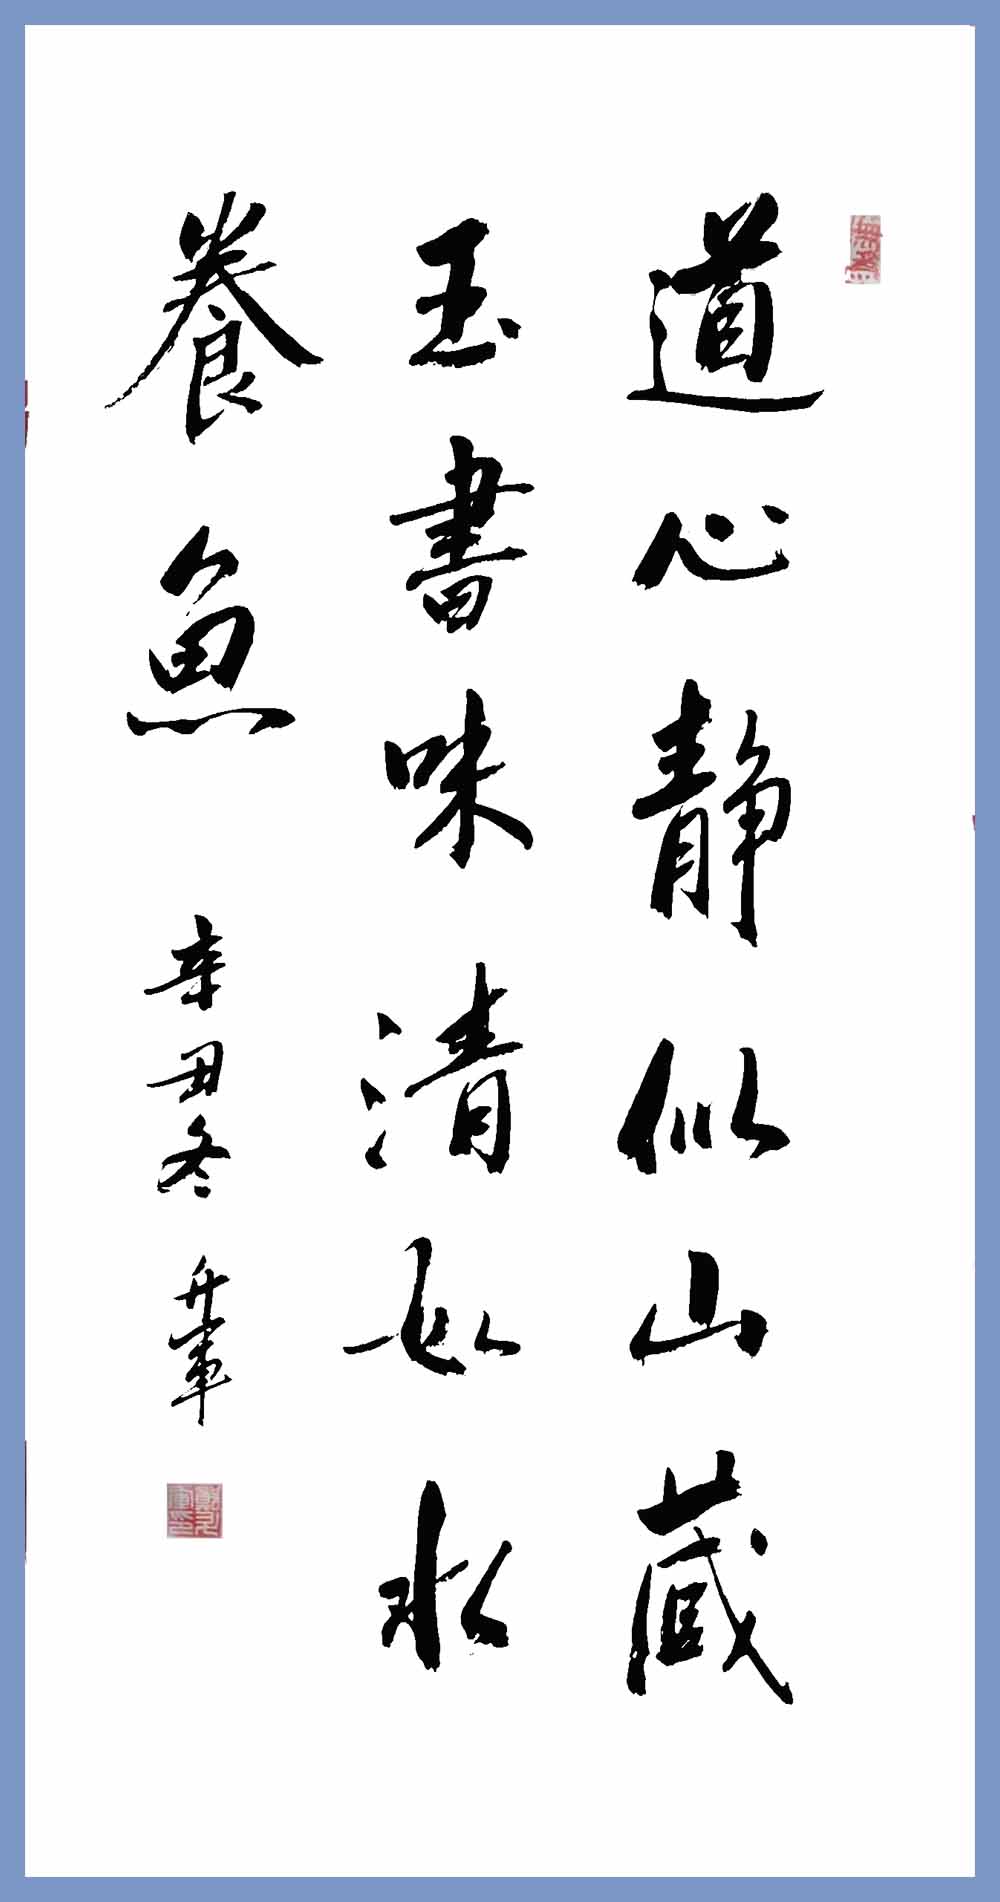 道心静似山藏
玉書味清如水
養魚
辛丑冬 升軍